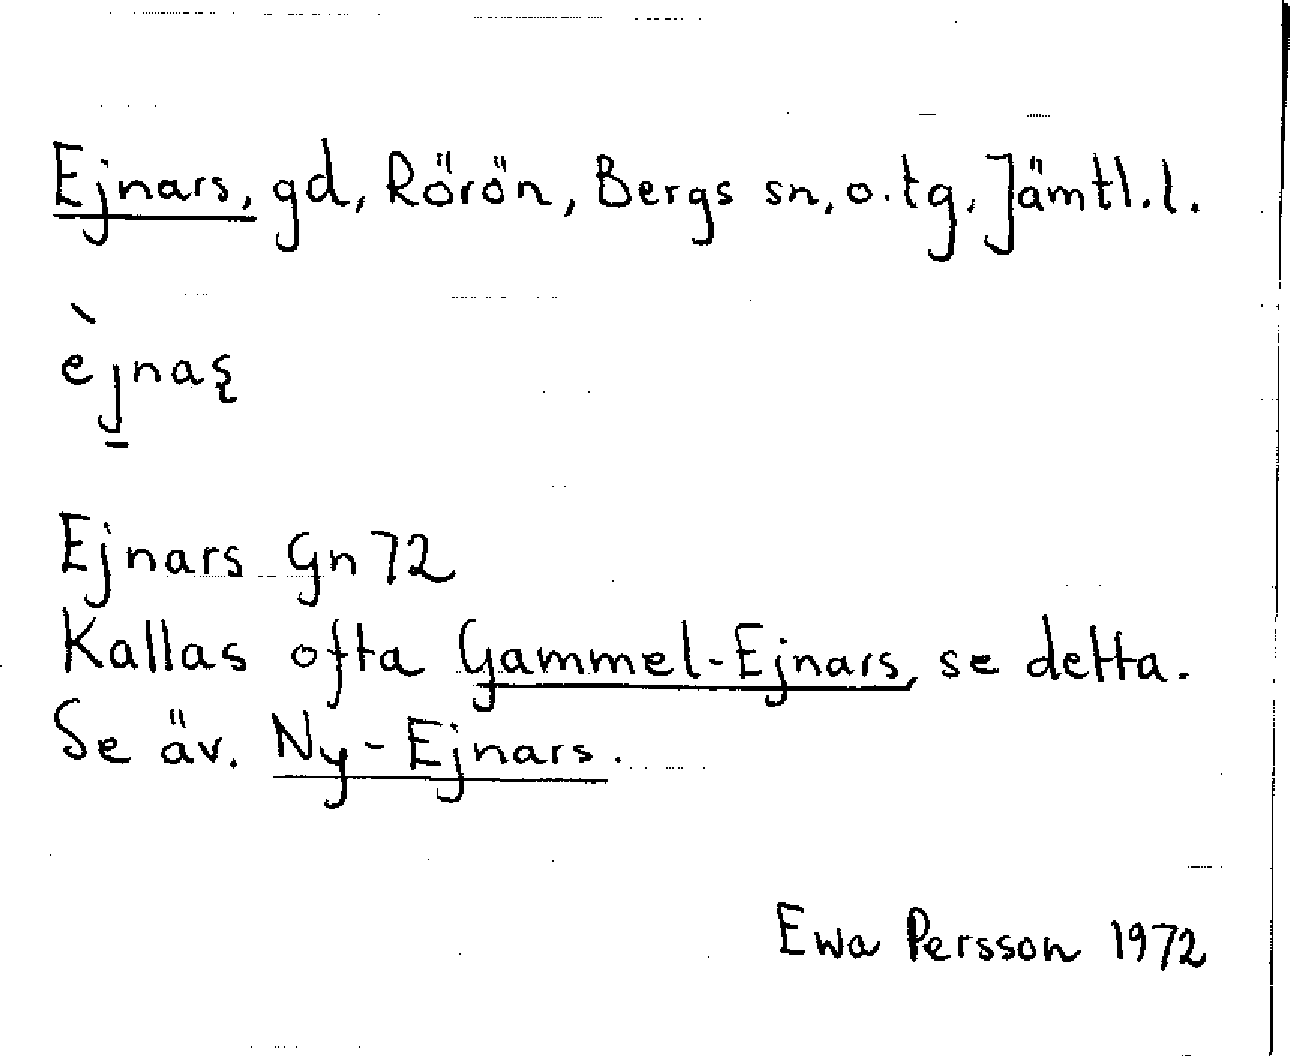 Ejnars, gd, Rörön, Bergs sn, o. tg, Jämtl. l.
èj̱naʂ
Ejnars Gn 72
Kallas ofta Gammel-Ejnars, se detta.
Se äv. Ny-Ejnars.
Ewa Persson 1972